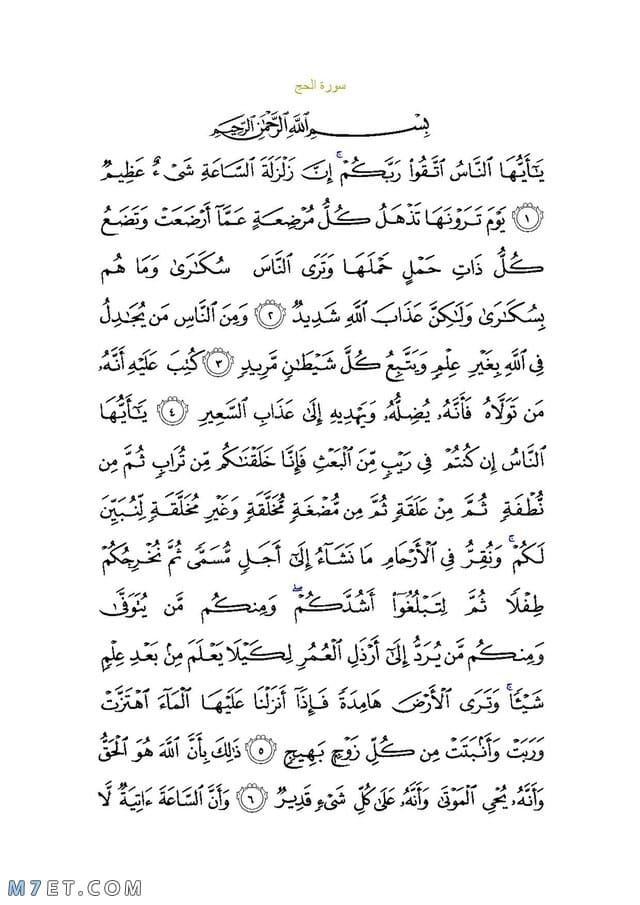 سورة الحج
بِسْمِ اللَّهِ الرَّحْمَٰنِ الرَّحِيمِ
يَـٰٓأَيُّهَا ٱلنَّاسُ ٱتَّقُوا۟ رَبَّكُمْ ۚ إِنَّ زَلْزَلَةَ ٱلسَّاعَةِ شَىْءٌ عَظِيمٌ
﴿١﴾ يَوْمَ تَرَوْنَهَا تَذْهَلُ كُلُّ مُرْضِعَةٍ عَمَّآ أَرْضَعَتْ وَتَضَعُ
كُلُّ ذَاتِ حَمْلٍ حَمْلَهَا وَتَرَى ٱلنَّاسَ سُكَـٰرَىٰ وَمَا هُم
بِسُكَـٰرَىٰ وَلَـٰكِنَّ عَذَابَ ٱللَّهِ شَدِيدٌ ﴿٢﴾ وَمِنَ ٱلنَّاسِ مَن يُجَـٰدِلُ
فِى ٱللَّهِ بِغَيْرِ عِلْمٍ وَيَتَّبِعُ كُلَّ شَيْطَـٰنٍ مَّرِيدٍ ﴿٣﴾ كُتِبَ عَلَيْهِ أَنَّهُۥ
مَن تَوَلَّاهُ فَأَنَّهُۥ يُضِلُّهُۥ وَيَهْدِيهِ إِلَىٰ عَذَابِ ٱلسَّعِيرِ ﴿٤﴾ يَـٰٓأَيُّهَا
ٱلنَّاسُ إِن كُنتُمْ فِى رَيْبٍ مِّنَ ٱلْبَعْثِ فَإِنَّا خَلَقْنَـٰكُم مِّن تُرَابٍ ثُمَّ مِن
نُّطْفَةٍ ثُمَّ مِنْ عَلَقَةٍ ثُمَّ مِن مُّضْغَةٍ مُّخَلَّقَةٍ وَغَيْرِ مُخَلَّقَةٍ لِّنُبَيِّنَ
لَكُمْ ۚ وَنُقِرُّ فِى ٱلْأَرْحَامِ مَا نَشَآءُ إِلَىٰٓ أَجَلٍ مُّسَمًّى ثُمَّ نُخْرِجُكُمْ
طِفْلًا ثُمَّ لِتَبْلُغُوٓا۟ أَشُدَّكُمْ ۖ وَمِنكُم مَّن يُتَوَفَّىٰ
وَمِنكُم مَّن يُرَدُّ إِلَىٰٓ أَرْذَلِ ٱلْعُمُرِ لِكَيْلَا يَعْلَمَ مِنۢ بَعْدِ عِلْمٍ
شَيْـًٔا ۚ وَتَرَى ٱلْأَرْضَ هَامِدَةً فَإِذَآ أَنزَلْنَا عَلَيْهَا ٱلْمَآءَ ٱهْتَزَّتْ
وَرَبَتْ وَأَنۢبَتَتْ مِن كُلِّ زَوْجٍۭ بَهِيجٍ ﴿٥﴾ ذَٰلِكَ بِأَنَّ ٱللَّهَ هُوَ ٱلْحَقُّ
وَأَنَّهُۥ يُحْىِ ٱلْمَوْتَىٰ وَأَنَّهُۥ عَلَىٰ كُلِّ شَىْءٍ قَدِيرٌ ﴿٦﴾ وَأَنَّ ٱلسَّاعَةَ ءَاتِيَةٌ لَّا
M7ET.COM